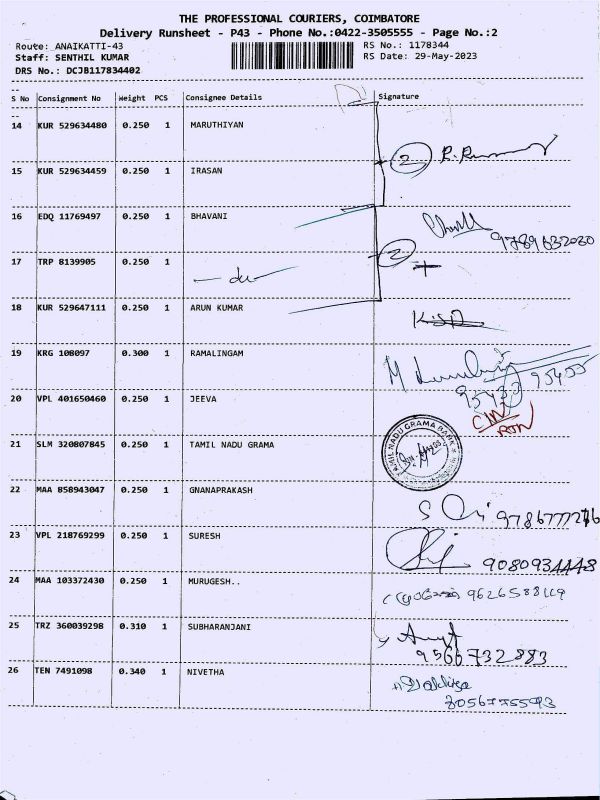 THE PROFESSIONAL COURIERS, COIMBATORE
Delivery Runsheet - P43 - Phone No.:0422-3505555 - Page No.:2
Route: ANAIKATTI-43 RS No.: 1178344
Staff: SENTHIL KUMAR RS Date: 29-May-2023
DRS No.: DCJB117834402
S No Consignment No Weight PCS Consignee Details Signature
14 KUR 529634480 0.250 1 MARUTHIYAN
2
15 KUR 529634459 0.250 1 IRASAN
16 EDQ 11769497 0.250 1 BHAVANI
9789632030
2
17 TRP 8139905 0.250 1 - do -
18 KUR 529647111 0.250 1 ARUN KUMAR
19 KRG 108097 0.300 1 RAMALINGAM
20 VPL 401650460 0.250 1 JEEVA
21 SLM 320807845 0.250 1 TAMIL NADU GRAMA
TAMIL NADU GRAMA BANK
22 MAA 858943047 0.250 1 GNANAPRAKASH
23 VPL 218769299 0.250 1 SURESH
9080934448
24 MAA 103372430 0.250 1 MURUGESH..
9626588119
25 TRZ 360039298 0.310 1 SUBHARANJANI
9566732883
26 TEN 7491098 0.340 1 NIVETHA